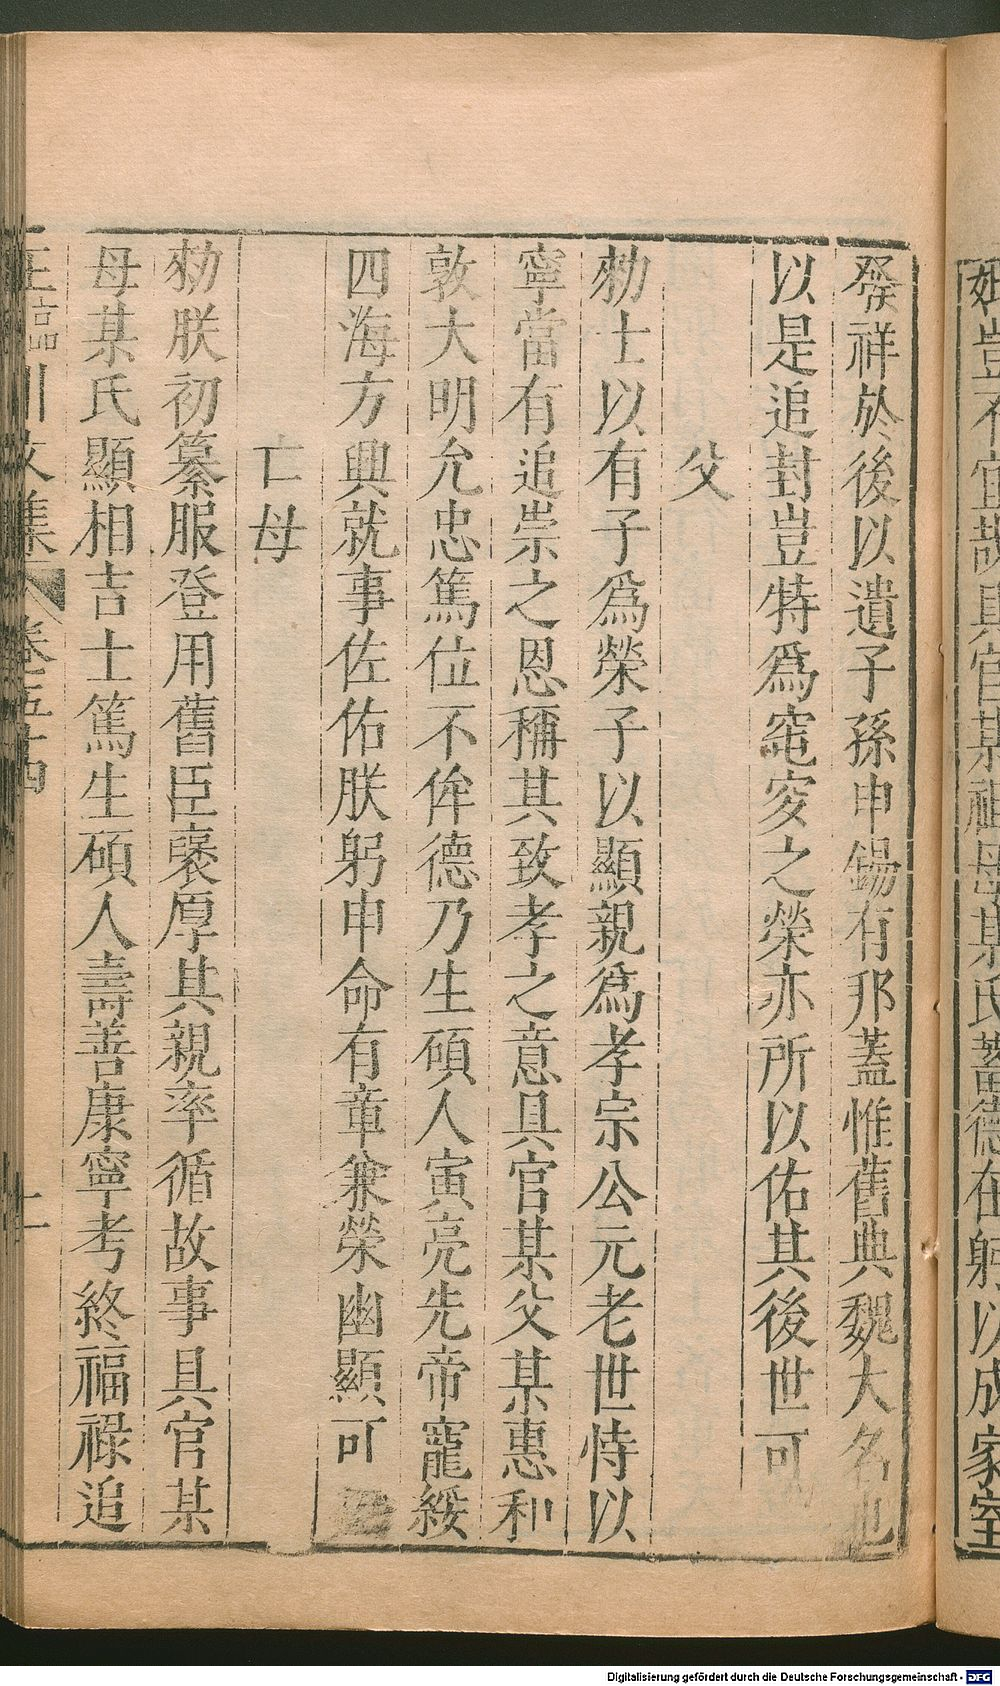 姐豈不宜哉具官某祖母某氏蓄德在躬以成家室
發祥於後以遺子孫申錫有那蓋惟舊典魏大名也
以是追封豈特爲窀穸之榮亦所以佑其後世可
父
勑士以有子爲榮子以顯親爲孝宗公元老世恃以
寧當有追崇之恩稱其致孝之意具官某父某惠和
敦大明允忠篤位不侔德乃生碩人寅亮先帝寵綏
四海方輿就事佐佑朕躬申命有章兼榮幽顯可
亡母
勑朕初纂服登用舊臣褒厚其親率循故事具官某
母某氏顯相吉士篤生碩人壽善康寧考終福祿追
王臨川文集 卷五十四 十一
Digitalisierung gefördert durch die Deutsche Forschungsgemeinschaft - DFG